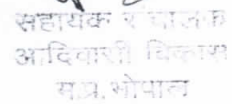 सहायक संचालक
आदिवासी विकास
म.प्र. भोपाल